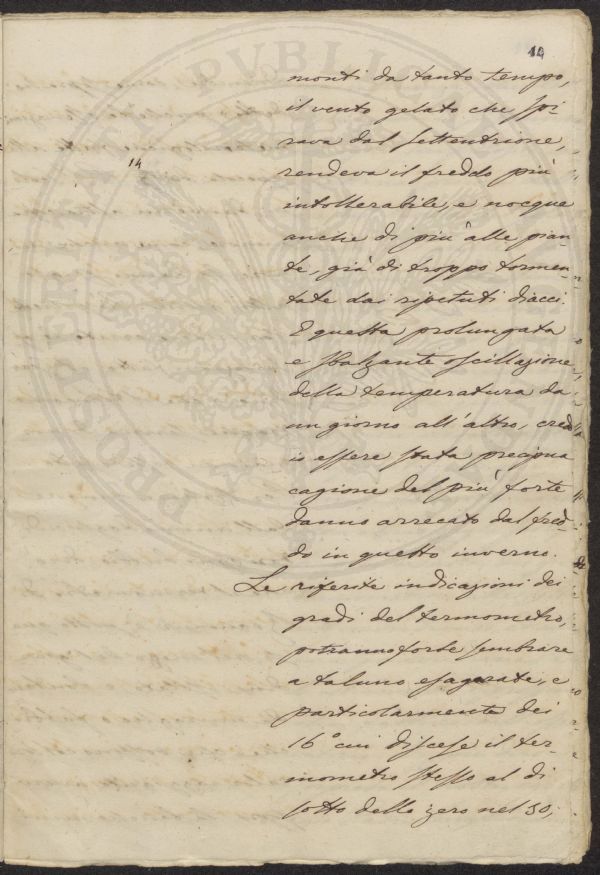 14
monti da tanto tempo,
il vento gelato che spi-
rava dal settentrione,
14
rendeva il freddo più
intollerabile, e nocque
anche di più alle pian-
te, già di troppo tormen-
tate dai ripetuti diacci.
E questa prolungata
e sbalzante oscillazione
della temperatura da
un giorno all'altro, cred'
io essere stata precipua
cagione del più forte
danno arrecato dal fred-
do in questo inverno.
Le riferite indicazioni dei
gradi del termometro,
potranno forse sembrare
a taluno esagerate, e
particolarmente dei
16° cui discese il ter-
mometro stesso al di
sotto dello zero nel 50;
PROSPERITATI PUBLICAE